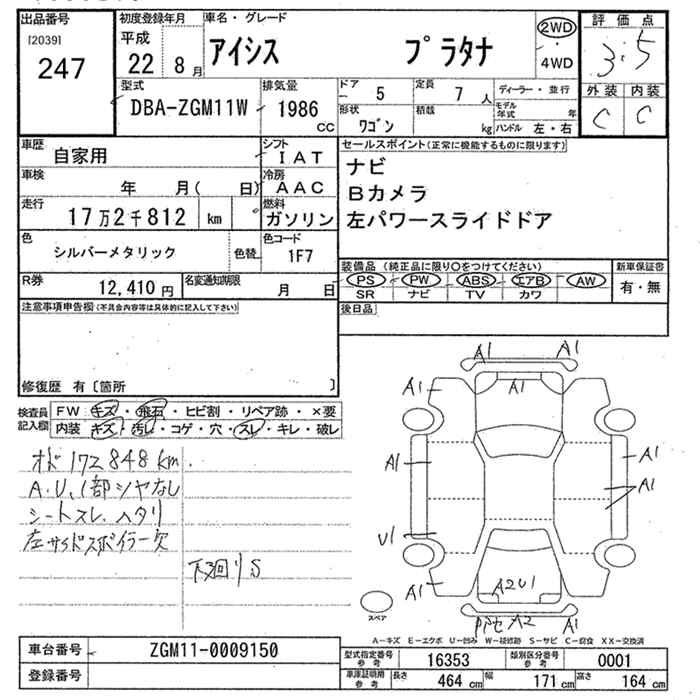 出品番号
[2039]
247
初度登録年月
平成
22 8 月
車名・グレード
アイシス プラタナ
2WD
・
4WD
評価点
3.5
外装 内装
C C
型式
DBA-ZGM11W
排気量
1986
CC
ドア
5
定員
7 人
形状
ワゴン
積載
kg
ディーラー・並行
モデル年式 年
ハンドル 左・右
車歴
自家用
シフト
IAT
車検
年 月( 日)
冷房
AAC
走行
17万2千812 km
燃料
ガソリン
色
シルバーメタリック
色替
色コード
1F7
R券
12,410 円
名変通知期限
月 日
セールスポイント(正常に機能するものに限ります)
ナビ
Bカメラ
左パワースライドドア
装備品 (純正品に限り○をつけてください)
PS PW ABS エアB AW
SR ナビ TV カワ
新車保証書
有・無
後日品
注意事項申告欄(不具合内容等は具体的に記入して下さい)
修復歴 有〔箇所 〕
検査員記入欄
FW キズ・飛石・ヒビ割・リペア跡・×要
内装 キズ・汚レ・コゲ・穴・スレ・キレ・破レ
オド 172848km.
A.U、1部シャなし
シートスレ、ヘタリ
左サイドスポイラー欠
下廻りS
A1 A1
A1 A1
A1 A1
A1
U1
A1 A2U1
A2 A1
スペア
A-キズ E-エクボ U-凹み W-補修跡 S-サビ C-腐食 XX-交換済
車台番号
ZGM11-0009150
登録番号
型式指定番号 参考
16353
類別区分番号 参考
0001
車庫証明用 参考
長さ 464 cm 幅 171 cm 高さ 164 cm